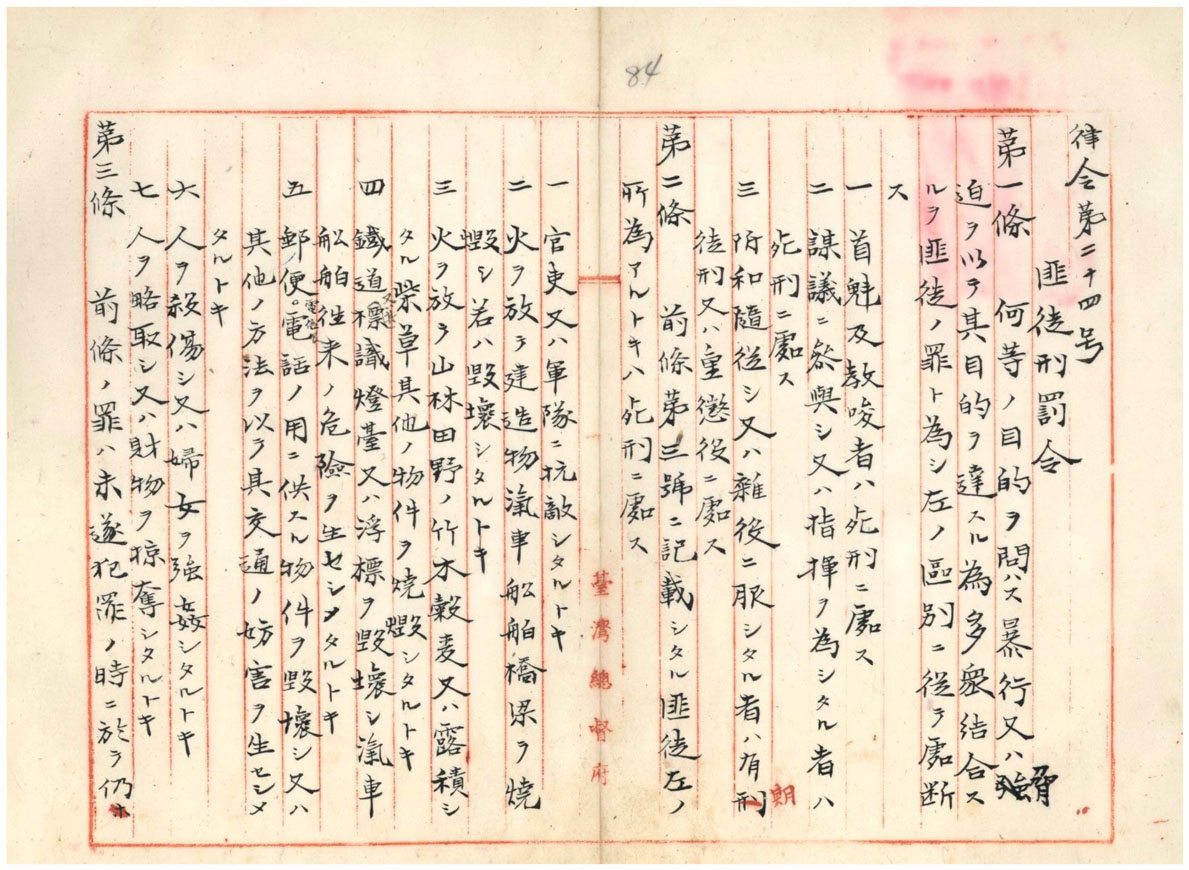 84
律令第二十四号
匪徒刑罰令
第一條 何等ノ目的ヲ問ハス暴行又ハ脅
迫ヲ以テ其目的ヲ達スル為多衆結合ス
ルヲ匪徒ノ罪ト為シ左ノ區別ニ従テ處断
ス
一 首魁及教唆者ハ死刑ニ處ス
二 謀議ニ參與シ又ハ指揮ヲ為シタル者ハ
死刑ニ處ス
三 附和隨従シ又ハ雜役ニ服シタル者ハ有期
徒刑又ハ重懲役ニ處ス
第二條 前條第三號ニ記載シタル匪徒左ノ
所為アルトキハ死刑ニ處ス
臺灣總督府
一 官吏又ハ軍隊ニ抗敵シタルトキ
二 火ヲ放テ建造物汽車船舶橋梁ヲ燒
燬シ若ハ毀壞シタルトキ
三 火ヲ放テ山林田野ノ竹木穀麦又ハ露積シ
タル柴草其他ノ物件ヲ燒燬シタルトキ
四 鐵道標識燈臺又ハ浮標ヲ毀壞シ汽車
船舶往来ノ危險ヲ生セシメタルトキ
五 郵便電話ノ用ニ供スル物件ヲ毀壞シ又ハ
其他ノ方法ヲ以テ其交通ノ妨害ヲ生セシメ
タルトキ
六 人ヲ殺傷シ又ハ婦女ヲ強姦シタルトキ
七 人ヲ略取シ又ハ財物ヲ掠奪シタルトキ
第三條 前條ノ罪ハ未遂犯罪ノ時ニ於テ仍ホ